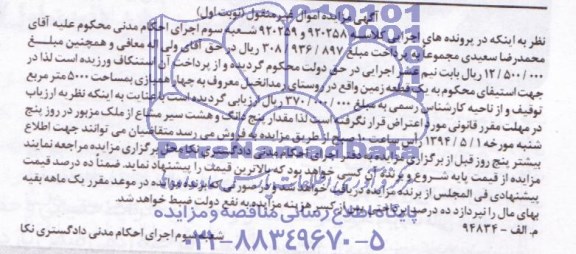 آگهی مزایده اموال غیرمنقول (نوبت اول)
نظر به اینکه در پرونده های اجرایی کلاسه ۹۲۰۲۵۸ و ۹۲۰۲۵۹ شعبه سوم اجرای احکام مدنی محکوم علیه آقای
محمدرضا سعیدی مجموعا به پرداخت مبلغ ۳۰۸/۹۳۶/۸۹۷ ریال در حق آقای ولی اله معافی و همچنین مبلغ
۱۲/۵۰۰/۰۰۰ ریال بابت نیم عشر اجرایی در حق دولت محکوم گردیده و از پرداخت آن استنکاف ورزیده است لذا در
جهت استیفای محکوم به یک قطعه زمین واقع در روستای مدانخس معروف به چهار همبازی به مساحت ۵۰۰۰ متر مربع
توقیف و از ناحیه کارشناس رسمی به مبلغ ۳۷۰/۰۰۰/۰۰۰ ریال ارزیابی گردیده است با عنایت به اینکه نظر به ارزیاب
در مهلت مقرر قانونی مورد اعتراض قرار نگرفته است لذا مقدار پنج دانگ و هشت سیر مشاع از ملک مزبور در روز پنج
شنبه مورخه ۱۳۹۴/۵/۱ راس ساعت ۱۰ از طریق مزایده به فروش می رسد متقاضیان می توانند جهت اطلاع
بیشتر پنج روز قبل از برگزاری مزایده به دفتر اجرای احکام مدنی دادگستری نکا محل برگزاری مزایده مراجعه نمایند
مزایده از قیمت پایه شروع و برنده آن کسی خواهد بود که بالاترین قیمت را پیشنهاد نماید. ضمناً ده درصد قیمت
پیشنهادی فی المجلس از برنده مزایده دریافت خواهد شد و در صورتی که برنده مزایده در موعد مقرر یک ماهه بقیه
بهای مال را نپردازد ده درصد پرداختی پس از کسر هزینه مزایده به نفع دولت ضبط خواهد شد.
م. الف - ۹۴۸۳۴
شعبه سوم اجرای احکام مدنی دادگستری نکا
پایگاه اطلاع رسانی مناقصه و مزایده
۰۲۱-۸۸۳۴۹۶۷۰-۵
ParsNamadData